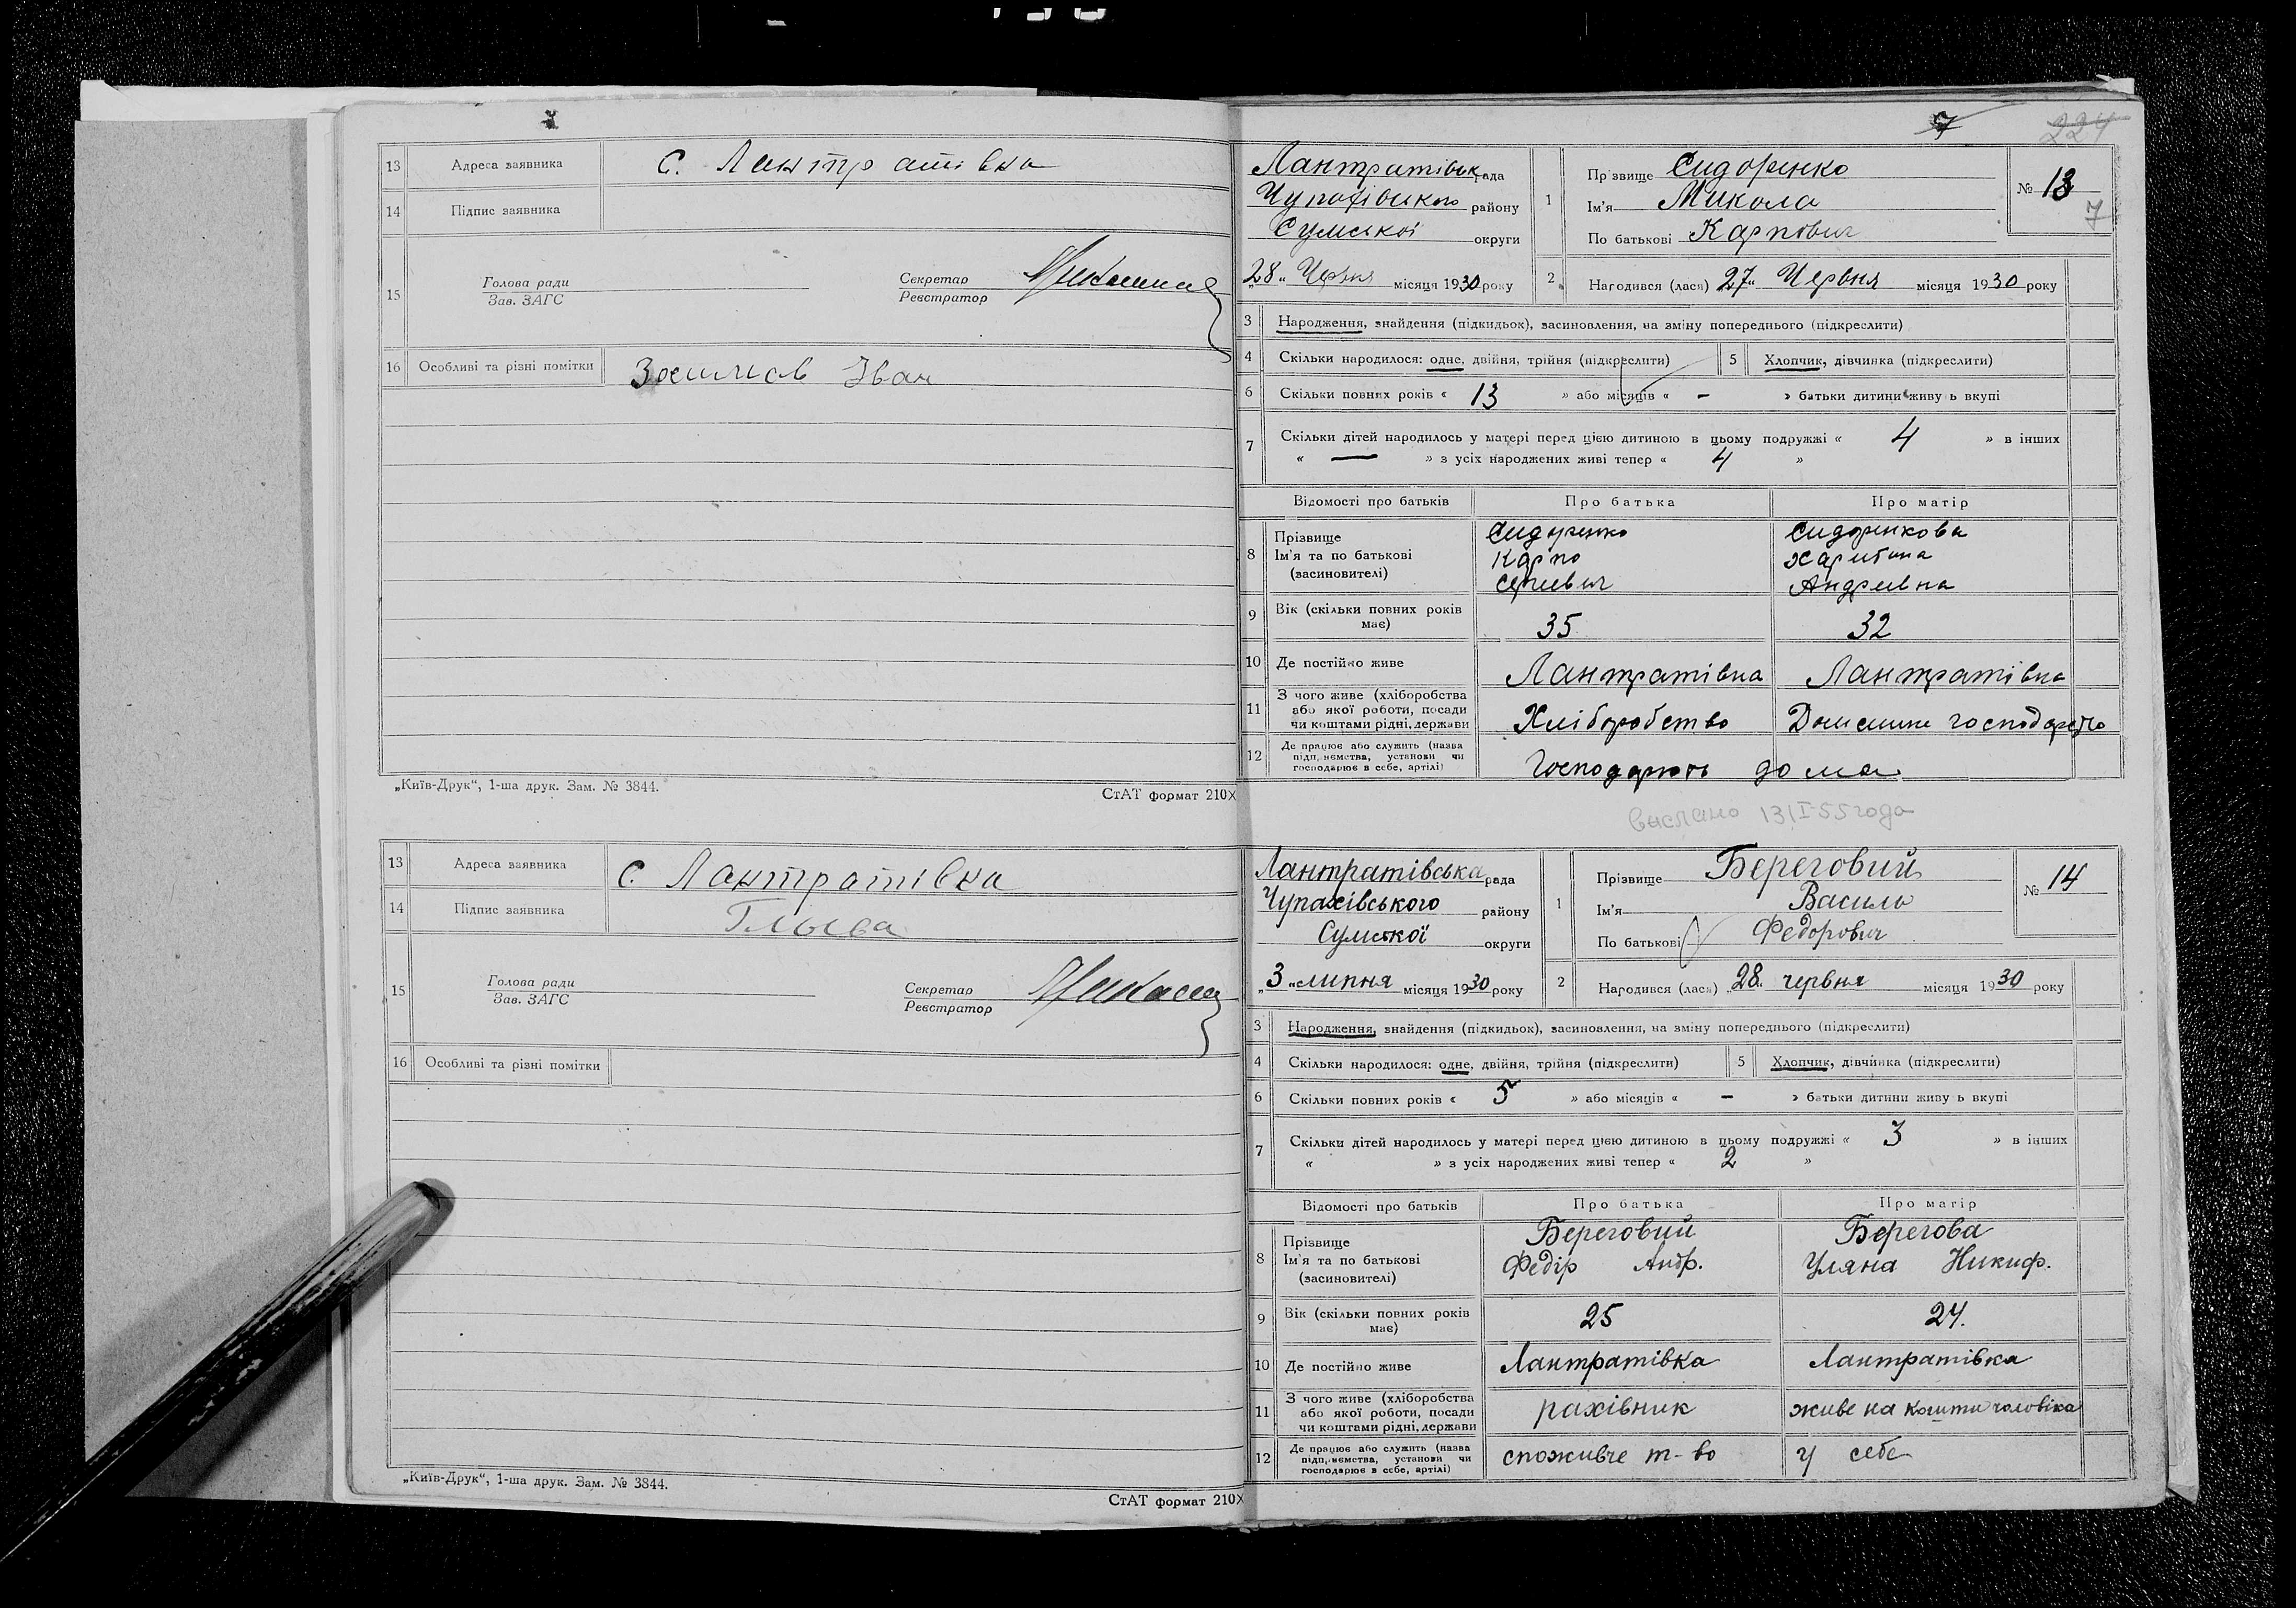 13 Адреса заявника с. Лантратівка
14 Підпис заявника
15 Голова ради
Зав. ЗАГС
Секретар
Реєстратор
16 Особливі та різні помітки Іван
„Київ-Друк“, 1-ша друк. Зам. № 3844.
СтАТ формат 210X
13 Адреса заявника с. Лантратівка
14 Підпис заявника
15 Голова ради
Зав. ЗАГС
Секретар
Реєстратор
16 Особливі та різні помітки
„Київ-Друк“, 1-ша друк. Зам. № 3844.
СтАТ формат 210X
7 224
Лантратівськ рада
Чупахівського району
Сумської округи
„28“ Червня місяця 1930 року
1 Прізвище Сидоренко
Ім'я Микола
По батькові Карпович
№ 13
7
2 Народився (лася) „27“ Червня місяця 1930 року
3 Народження, знайдення (підкидьок), засиновлення, на зміну попереднього (підкреслити)
4 Скільки народилося: одне, двійня, трійня (підкреслити) 5 Хлопчик, дівчинка (підкреслити)
6 Скільки повних років « 13 » або місяців « - » батьки дитини живуть вкупі
7 Скільки дітей народилось у матері перед цією дитиною в цьому подружжі « 4 » в інших
« — » з усіх народжених живі тепер « 4 »
Відомості про батьків Про батька Про матір
8 Прізвище Сидоренко Сидоренкова
Ім'я та по батькові Карпо Харитина
(засиновителі) Андреивна
9 Вік (скільки повних років має) 35 32
10 Де постійно живе Лантратівка Лантратівка
11 З чого живе (хліборобства або якої роботи, посади чи коштами рідні, держави Хліборобство господарство
12 Де працює або служить (назва підприємства, установи чи господарює в себе, артілі) Господарють дома
выслано 13/I-55 года
Лантратівська рада
Чупахівського району
Сумської округи
„3“ липня місяця 1930 року
1 Прізвище Береговий
Ім'я Василь
По батькові Федорович
№ 14
2 Народився (лася) „28“ червня місяця 1930 року
3 Народження, знайдення (підкидьок), засиновлення, на зміну попереднього (підкреслити)
4 Скільки народилося: одне, двійня, трійня (підкреслити) 5 Хлопчик, дівчинка (підкреслити)
6 Скільки повних років « 5 » або місяців « - » батьки дитини живуть вкупі
7 Скільки дітей народилось у матері перед цією дитиною в цьому подружжі « 3 » в інших
« » з усіх народжених живі тепер « 2 »
Відомості про батьків Про батька Про матір
8 Прізвище Береговий Берегова
Ім'я та по батькові Федір Андр. Уляна Никиф.
(засиновителі)
9 Вік (скільки повних років має) 25 24.
10 Де постійно живе Лантратівка Лантратівка
11 З чого живе (хліборобства або якої роботи, посади чи коштами рідні, держави рахівник живе на кошти чоловіка
12 Де працює або служить (назва підприємства, установи чи господарює в себе, артілі) споживче т-во у себе